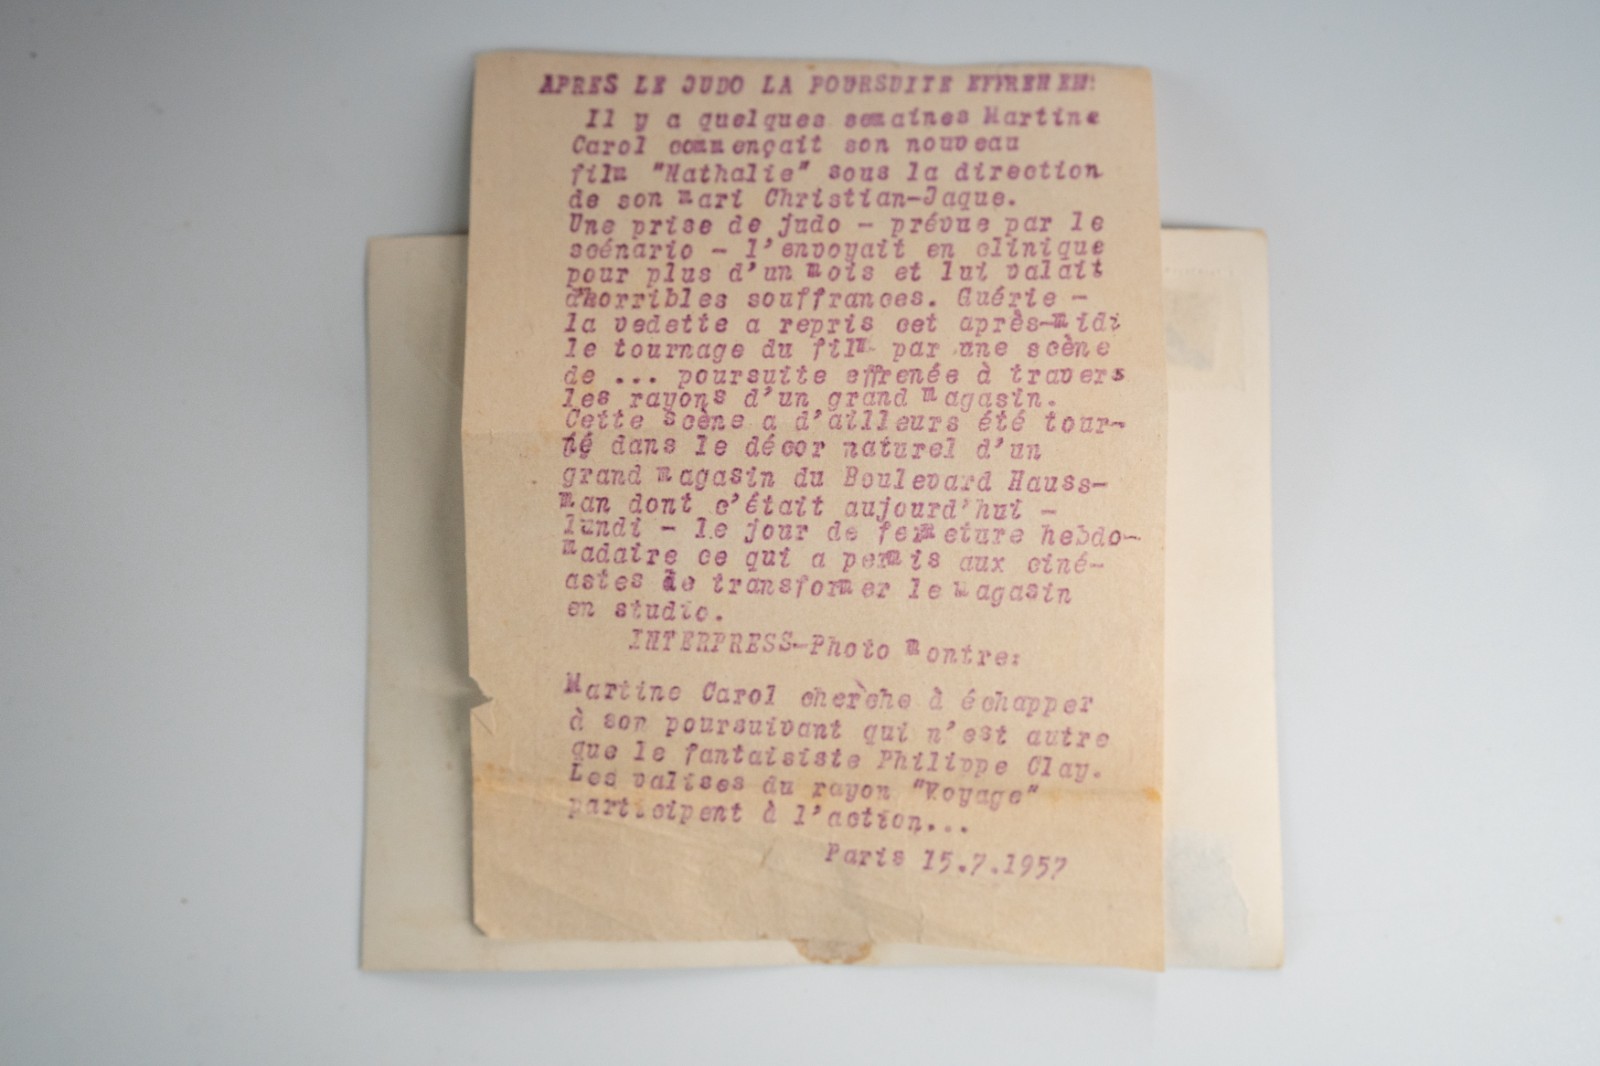 APRES LE JUDO LA POURSUITE EFFRENEE:
Il y a quelques semaines Martine
Carol commençait son nouveau
film "Nathalie" sous la direction
de son mari Christian-Jaque.
Une prise de judo - prévue par le
scénario - l'envoyait en clinique
pour plus d'un mois et lui valait
d'horribles souffrances. Guérie -
la vedette a repris cet après-midi
le tournage du film par une scène
de ... poursuite effrenée à travers
les rayons d'un grand magasin.
Cette scène a d'ailleurs été tour-
né dans le décor naturel d'un
grand magasin du Boulevard Hauss-
man dont c'était aujourd'hui -
lundi - le jour de fermeture hebdo-
madaire ce qui a permis aux ciné-
astes de transformer le magasin
en studio.
INTERPRESS-Photo montre:
Martine Carol cherche à échapper
à son poursuivant qui n'est autre
que le fantaisiste Philippe Clay.
Les valises du rayon "Voyage"
participent à l'action...
Paris 15.7.1957